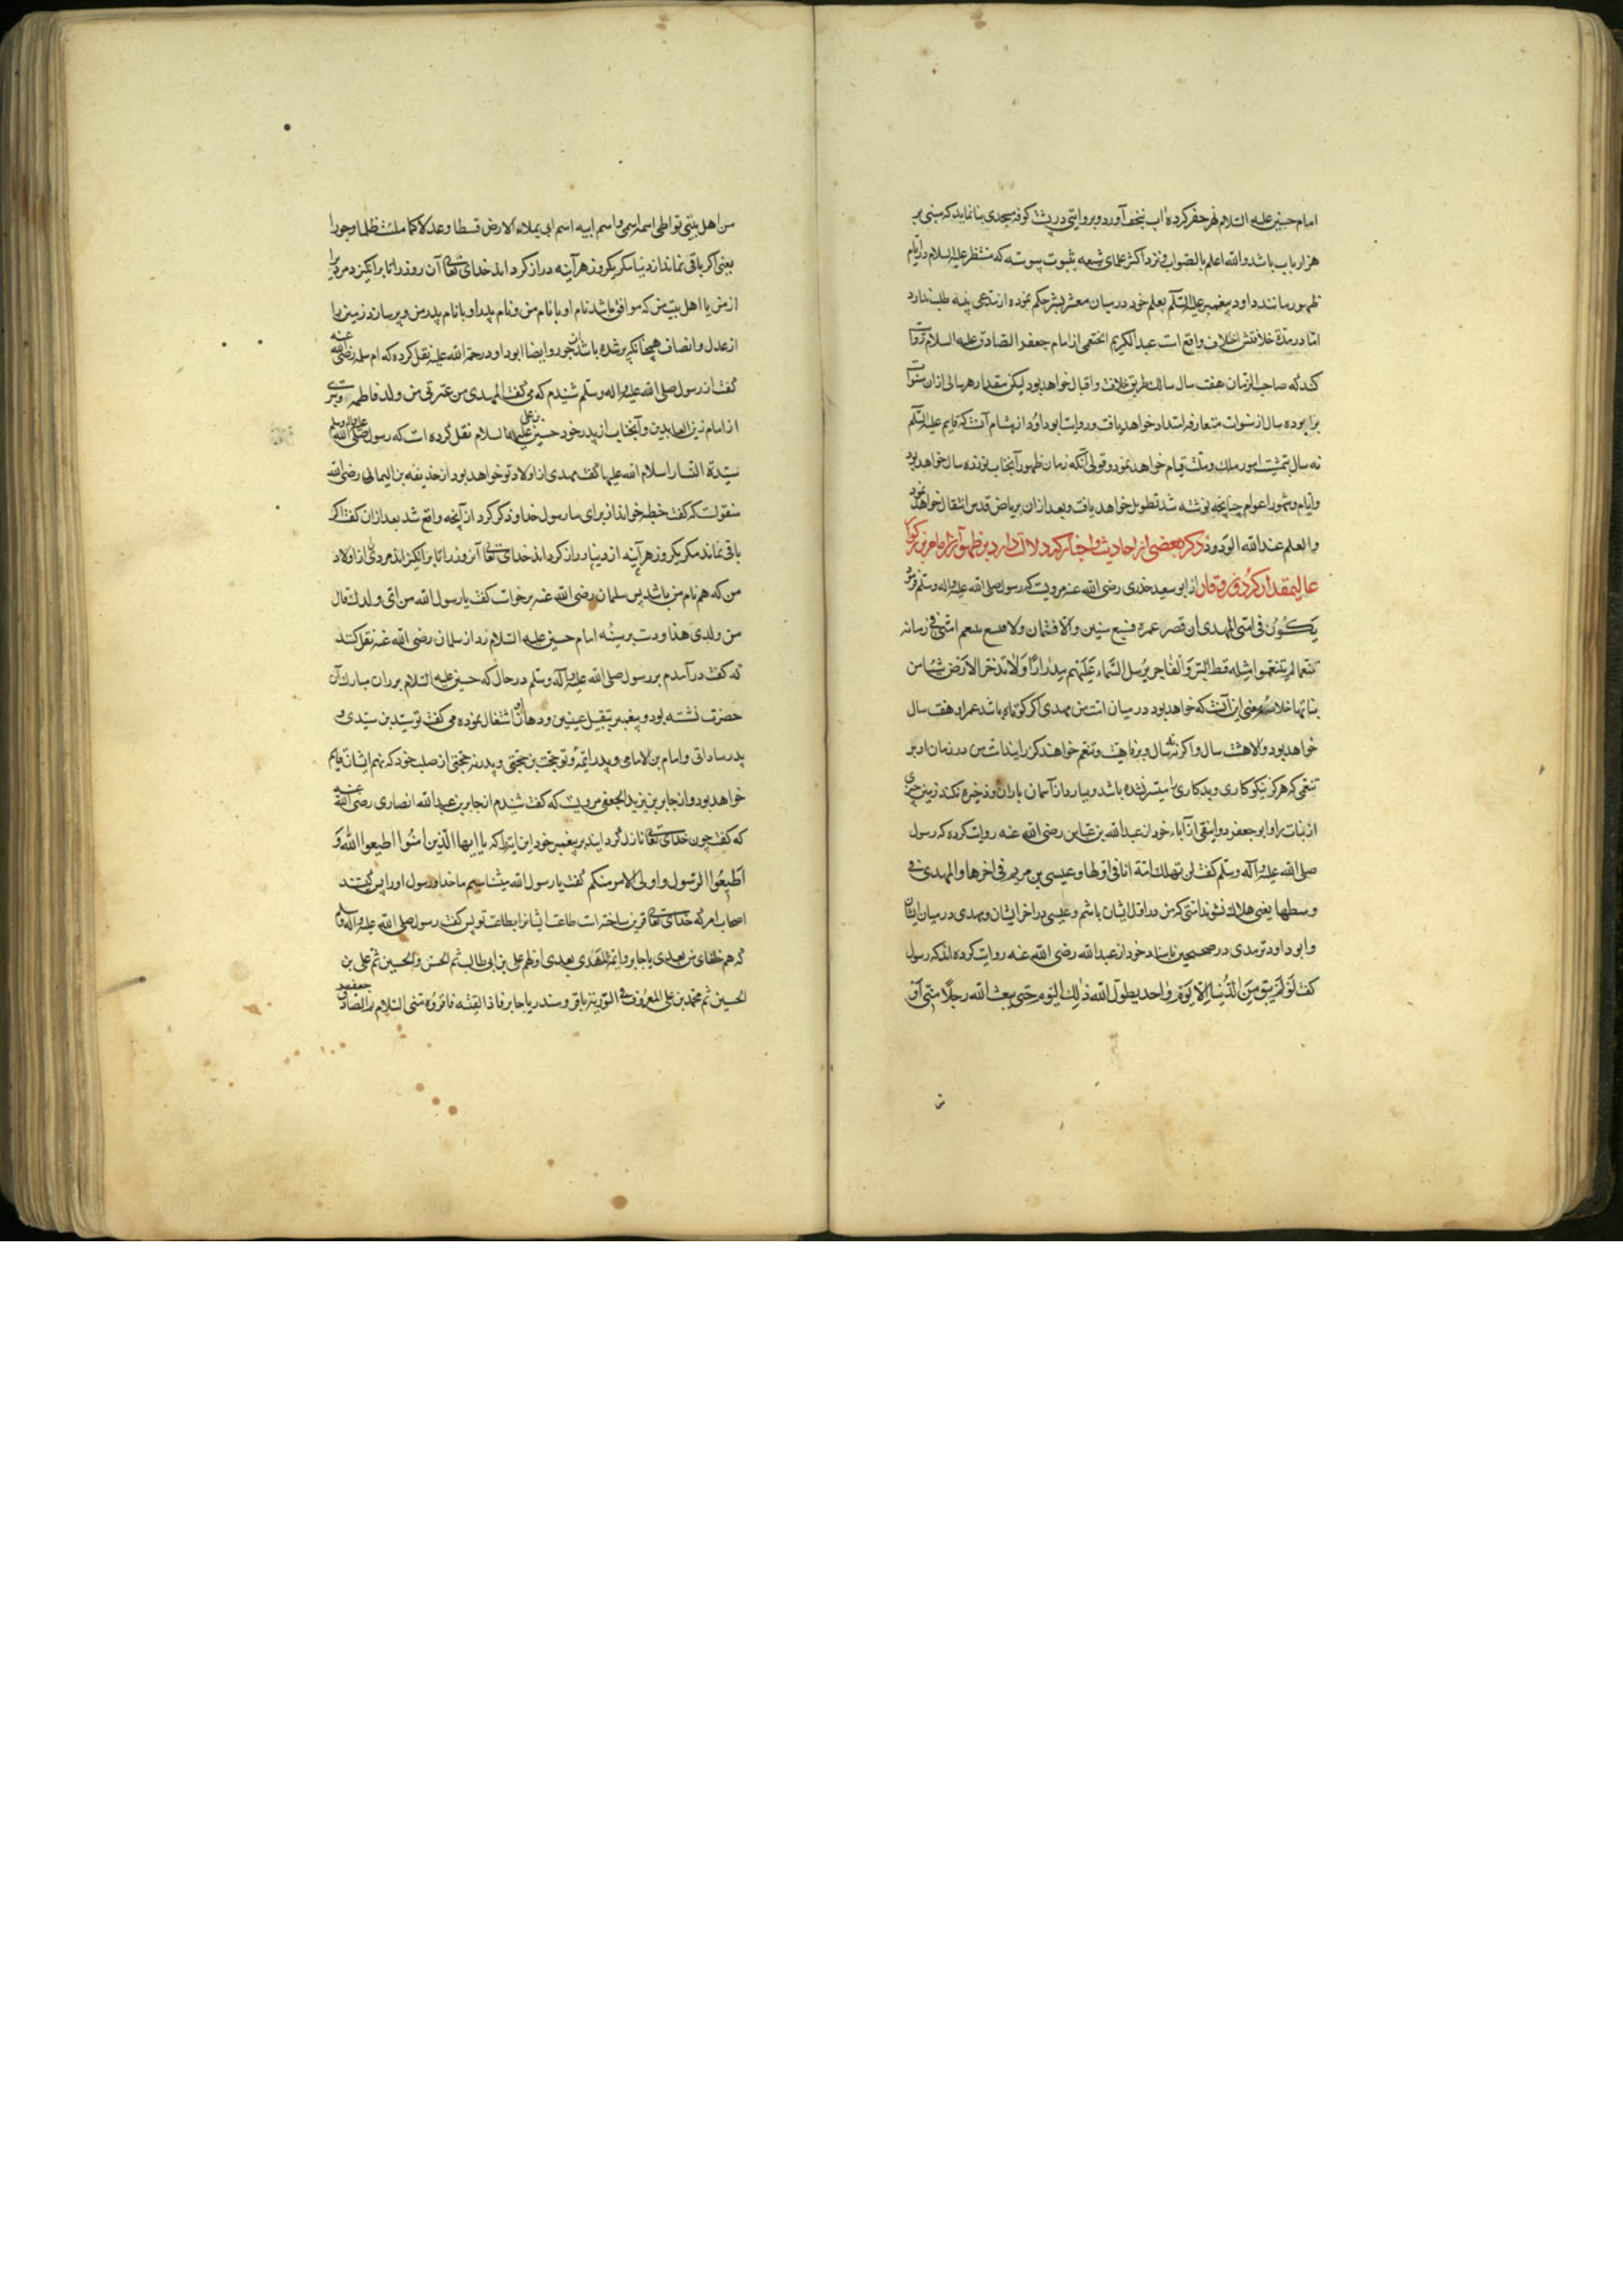 امام حسین علیه السلام نهر حفر کرده آب بنجف آورد و بروایتی در پشت کوفه مسجدی بنا نماید که مبنی بر
هزار باب باشد والله اعلم بالصواب و نزد اکثر علمای شیعه بثبوت پیوسته که منتظر علیه السلام در ایام
ظهور مانند داود پیغمبر علیه السلم بعلم خود در میان معشر بشر حکم نموده از مدعی بینه طلب ندارد
اما در مدة خلافتش اختلاف واقع است عبدالکریم الخثعمی از امام جعفر الصادق علیه السلام روایت
کند که صاحب الزمان هفت سال سالک طریق خلافت و اقبال خواهد بود لیکن مقدار هر سالی ازان سنوات
برابر ده سال از سنوات متعارفه امتداد خواهد یافت و روایت ابو داود از هشام آنست که قایم علیه السلم
نه سال بتمشیت امور ملک و ملت قیام خواهد نمود و قولی آنکه زمان ظهور آنجناب نوزده سال خواهد بود
و ایام و شهور اعوام چنانچه نوشته شد تطویل خواهد یافت و بعد ازان بریاض قدس انتقال خواهد نمود
والعلم عند الله الودود ذکر بعضی از احادیث و اخبار که دلالت دارد بر ظهور آن
عالیمقدار از ابو سعید خدری رضی الله عنه مرویست که رسول صلی الله علیه واله وسلم فرمود
یَکُونُ فی امتی المهدی ان قصر عمره فسبع سنین والا فثمان ولا فتسع یتنعم امتی فی زمانه
تنعما لم یتنعموا مثله قط البَرّ وَالفاجر یُرسل السَّماء عَلَیهم مِدرارًا وَلا تدّخر الارَض شیئا من
نباتها خلاصه معنی این آنست که خواهد بود در میان امت من مهدی اگر کوتاه باشد عمر او هفت سال
خواهد بود والا هشت سال و اگر نه نه سال و برفاهیت و تنعم خواهند گذرانید امت من در زمان او بر
تنعمی که هرگز نیکوکاری و بدکاری را میسر نشده باشد و ببارد از آسمان باران و ذخیره نکند زمین چیزی
از نبات را و ابو جعفر دوانیقی از آباء خود از عبدالله بن عباس رضی الله عنه روایت کرده که رسول
صلی الله علیه وآله وسلم گفت لن تهلک امة انا فی اولها و عیسی بن مریم فی اخرها و المهدی فی
وسطها یعنی هلاک نشوند امتی که من در اول ایشان باشم و عیسی در اخر ایشان و مهدی در میان ایشان
و ابو داود ترمدی در صحیحین باسناد خود از عبدالله رضی الله عنه روایت کرده اند که رسول
گفت لَو لَم یَبق مِنَ الدُّنیا اِلا یَوم واحد یطول الله ذلِک الیَوم حَتی یبعث الله رجلًا منی او
من اهل بیتی تواطی اسمه اسمی و اسم ابیه اسم ابی یملاء الارض قسطا وعدلا کما ملئت ظلما وجورا
یعنی اگر باقی نماند از دنیا مگر یکروز هر آینه دراز گرداند خدای تعالی آن روز را تا برانگیزد مردیرا
از من یا اهل بیت من که موافق باشد نام او با نام من و نام پدر او با نام پدر من و پر سازد زمین را
از عدل و انصاف همچنانکه پر شده باشد ان جور و ایضا ابو داود رحمة الله علیه نقل کرده که ام سلمه رضی الله عنه
گفت از رسول صلی الله علیه واله وسلم شنیدم که می گفت المهدی من عترتی من ولد فاطمه
از امام زین العابدین و آنجناب از پدر خود حسین بن علی علیهما السلام نقل کرده است که رسول صلی الله علیه واله وسلم
سیدة النسا را سلام الله علیها گفت مهدی از اولاد تو خواهد بود از حذیفه بن الیمانی رضی الله
منقولست که گفت خطبه خواند از برای ما رسول خدا و ذکر کرد از آنچه واقع شد بعد ازان گفت اگر
باقی نماند مگر یکروز هر آینه از دنیا دراز گرداند خدای تعالی آنروز را تا برانگیزاند مردی از اولاد
من که هم نام من باشد پس سلمان رضی الله عنه برخواست گفت یا رسول الله من ای ولدک قال
من ولدی هذا و دست بر سینه امام حسین علیه السلام زد از سلمان رضی الله عنه نقل کنند
که گفت در آمدم بر رسول صلی الله علیه وآله وسلم در حال که حسین علیه السلام بر ران مبارک آن
حضرت نشسته بود و پیغمبر بتقبیل عینین و دهان او اشتغال نموده می گفت تو سید بن سیدی و
پدر ساداتی و امام بن الامامی و پدر ائمهٔ و تو حجت بن حجتی و پدر نه حجتی از صلب خود که نهم ایشان قایم
خواهد بود و از جابر بن یزید الجعفی مرویست که گفت شنیدم از جابر بن عبدالله انصاری رضی الله عنه
که گفت چون خدای تعالی نازل گردانید بر پیغمبر خود این ایت را که یا ایها الذین امنُوا اطیعوا الله وَ
اَطیعُوا الرسول و اولی الامر منکم گفت یا رسول الله میشناسیم ما خدا و رسول او را پس کیستند
اصحاب امر که خدای تعالی قرین ساخته است طاعت ایشانرا بطاعت تو پس گفت رسول صلی الله علیه واله وسلم
که هم خلفای من بعدی یا جابر و ائمة الهدی بعدی اولهم علی بن ابی طالب ثم الحسن و الحسین ثم علی بن
الحسین ثم محمد بن علی المعروف فی التوریة بباقر و ستدرکه یا جابر فاذا لقیته فاقرؤه منی السلام ثم الصادق جعفر